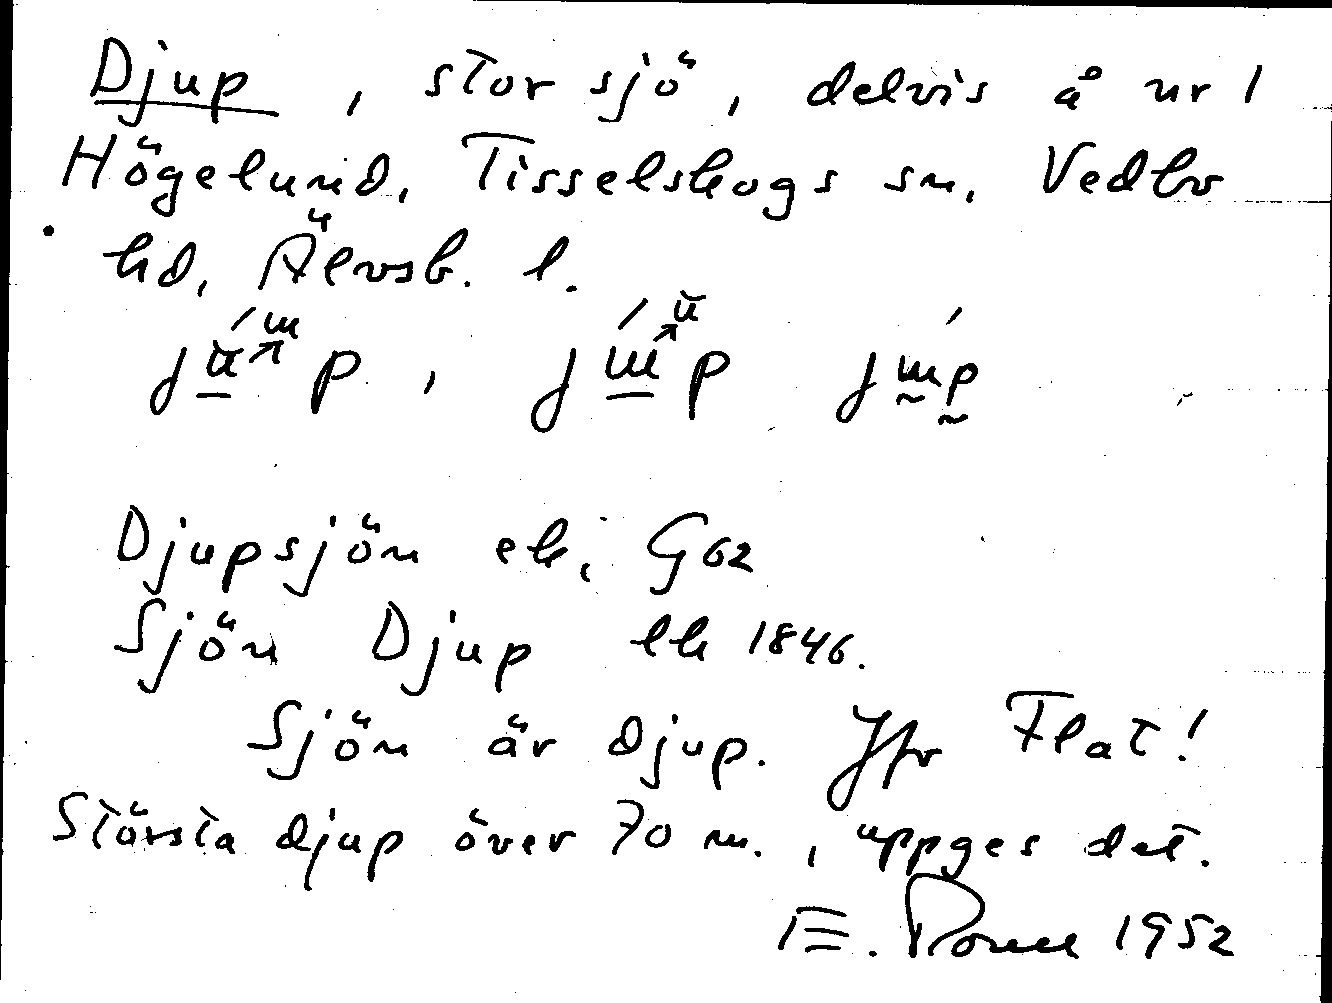 Djup, stor sjö, delvis å nr 1
Högelund, Tisselskogs sn, Vedbo
hd, Älvsb. l.
Djupsjön ek. G 62
Sjön Djup lk 1846.
Sjön är djup. Jfr Flat!
Största djup över 70 m., uppges det.
E. 1952